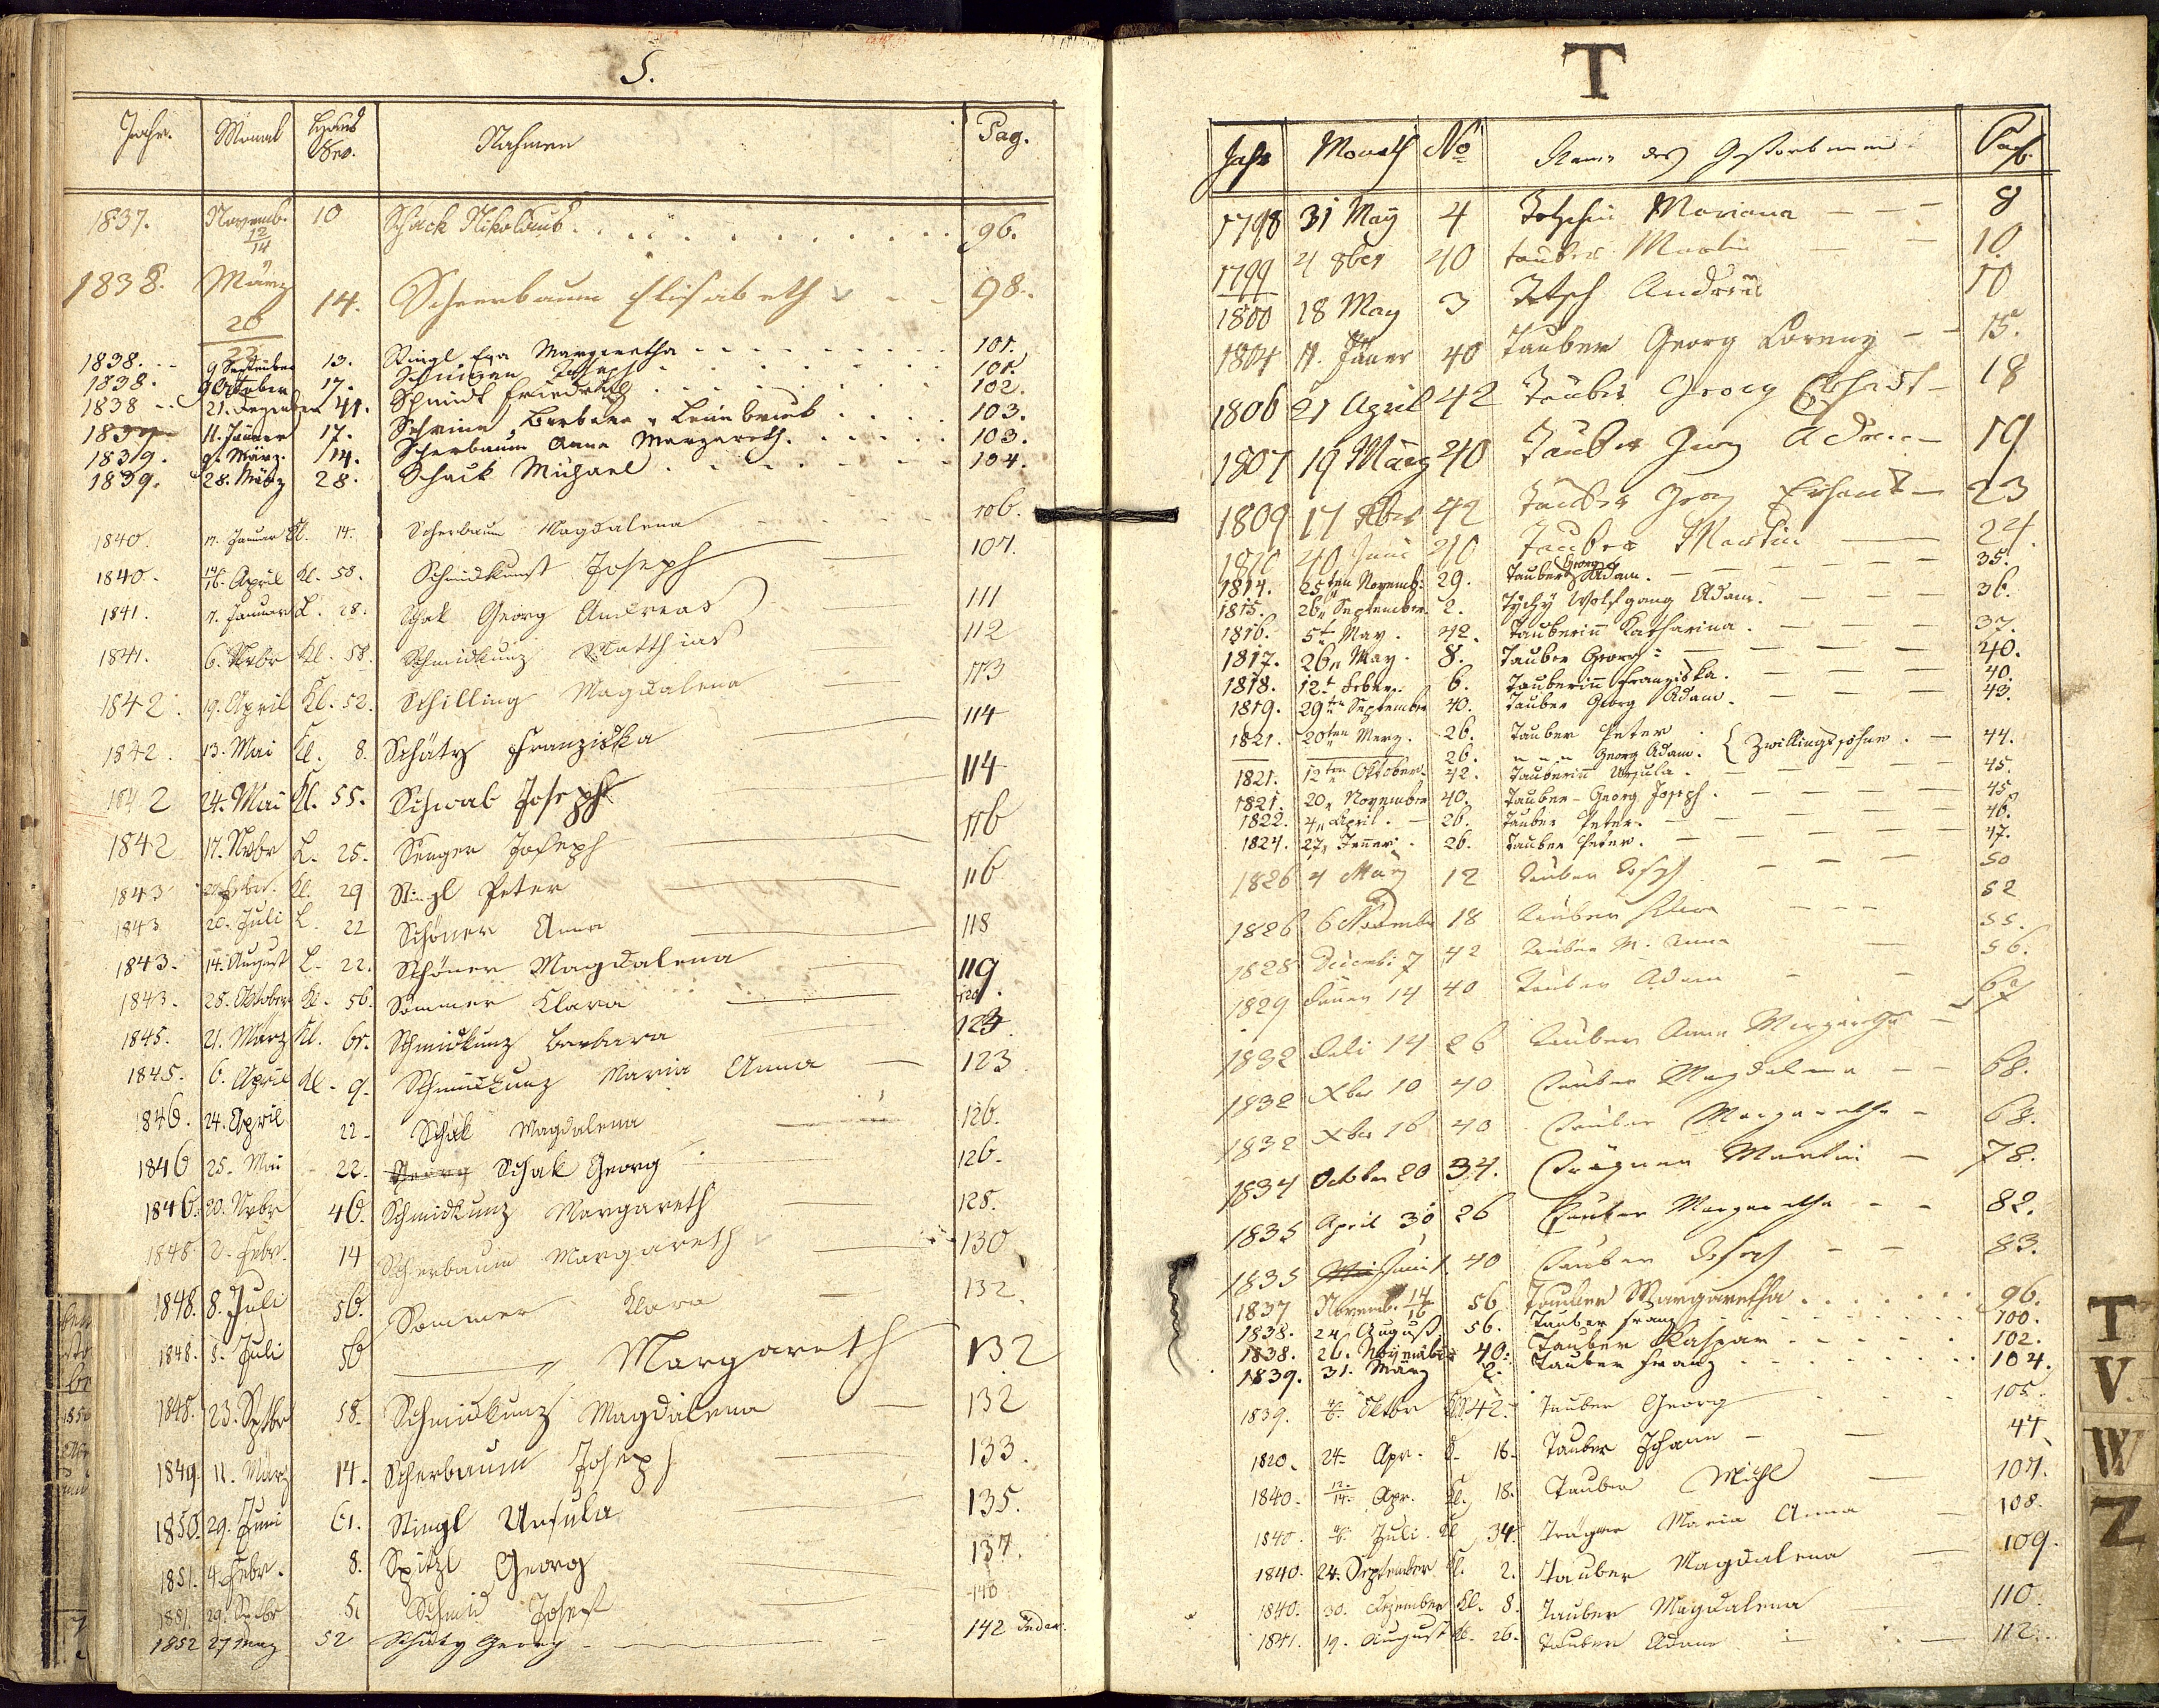 S.
Jahr. Monat Haus Nro. Nahmen Pag.
1837. Novemb. 12/14 10 Schack Nikolaus 96.
1838. März 20 14. Scheerbaum Elisabeth 98.
1838. 9 September 13. Stingl Eva Margaretha 101.
1838. 9 Octoben 17. Joseph 101.
1838 21. Dezember 41. Schmidt Friedrich 102.
1839 11. Jänner 17. Barbara 103.
1839. 9. März. 14. Scherbaum Anna Margareth. 103.
1839. 28. März 28. Schack Michael 104.
1840. 17. Januar Kl. 14. Scherbaum Magdalena 106.
1840. 14/16. April Kl. 58. Schmidkunst Joseph 107.
1841. 7. Januar L. 28. Schak Georg Andreas 111
1841. 6. Nvbr Kl. 58. Schmidkunz Matthias 112
1842. 19. April Kl. 52. Schilling Magdalena 113
1842. 13. Mai Kl. 8. Schätz Franziska 114
1842 24. Mai Kl. 55. Schwab Joseph 114
1842 17. Nvbr L. 25. Senger Joseph 116
1843 Kl. 29 Stingl Peter 116
1843 20. Juli L. 22 Schöner Anna 118
1843. 14. August L. 22. Schöner Magdalena 119
1843. 28. Oktober Kl. 56. Sommer Klara 120.
1845. 21. März Kl. 61. Schmidkunz Barbara 123.
1845. 6. April Kl. 9. Schmidkunz Maria Anna 123
1846. 24. April 22 Schak Magdalena 126.
1846 25. Mai 22. Georg Schak Georg 126.
1846. 20. Nvbr 46. Schmidkunz Margareth 128.
1848. 2. Febr. 14 Scherbaum Margareth 130
1848. 8. Juli 56. Sommer Klara 132.
1848. 8. Juli 56 " Margareth 132
1848. 23. Sptbr 58. Schmidkunz Magdalena 132
1849. 11. März 14. Scherbaum Joseph 133.
1850. 29. Juni 61. Stingl Ursula 135.
1851. 4. Febr. 8. Spitzl Georg 137.
1851. 29. Sptbr 5. Schmid Josef 140
1852 27 52 Schätz Georg 142
T
Jahr Monath No Name des Gestorbenen Pag.
1798 31 May 4 Mariana 8
1799 4 8ber 40 tauber Martin 10.
1800 18 May 3 Tetsch Andreas 10
1804 11. Jäner 40 Tauber Georg Lorenz 15.
1806 21 April 42 Tauber Georg Erhart 18
1807 19 März 40 Tauber Adam 19
1809 17 42 Tauber Georg Erhart 23
1810 Juni Tauber Martin 24.
1814. 25ten Novemb. 29. Tauber Georg Adam. 35.
1815. 26. September. 2. Tychy Wolfgang Adam. 36.
1816. 5t May. 42. Tauberinn Katharina. 37.
1817. 26. May. 8. Tauber Georg 40.
1818. 12t Feber. 6. Tauberinn Franziska. 40.
1819. 29ten September 40. Tauber Georg Adam. 43.
1821. 20ten Merz. 26. Tauber Peter
26. " " " Georg Adam. { Zwillingssöhne. 44.
1821. 12ten Oktober. 42. Tauberinn Ursula. 45.
1821. 20. November 40. Tauber Georg Joseph. 45.
1822. 4. April. 26. Tauber Peter. 46.
1824. 27. Jenner. 26. Tauber Peter. 47.
1826 4 März 12 Tauber Joseph 50
1826 6 November 18 Tauber 52
1828 Decemb: 7 42 Tauber M. Anna 55.
1829 Jäner 14 40 Tauber Adam 56.
1832 Juli 14 26 Tauber Anna Margaretha 67
1832 Xber 10 40 Tauber Magdalena 68.
1832 Xber 16 40 Tauber Margaretha 68.
1834 October 20 34. Trägner Martin 78.
1835 April 30 26 Tauber Margaretha 82.
1835 Mai Juni 1 40 Tauber Joseph 83.
1837 Novemb. 14/16 56 Tauber Margaretha 96.
1838. 24 August 56. Tauber Franz 100.
1838. 26. November 40. Tauber Kaspar 102.
1839. 31. März 2. Tauber Franz 104.
1839. Oktbr 42. Tauber Georg 105.
1820. 24. Apr. 16. Tauber Johann 44
1840. 12/14. Apr. Kl. 18. Tauber Michl 107.
1840. Juli Kl 34. Trägner Maria Anna 108.
1840. 24. September Kl. 2. Tauber Magdalena 109.
1840. 30. Dezember Kl. 8. Tauber Magdalena 110.
1841. 19. August Kl. 26. Tauber Adam 112.
T
V
W
Z